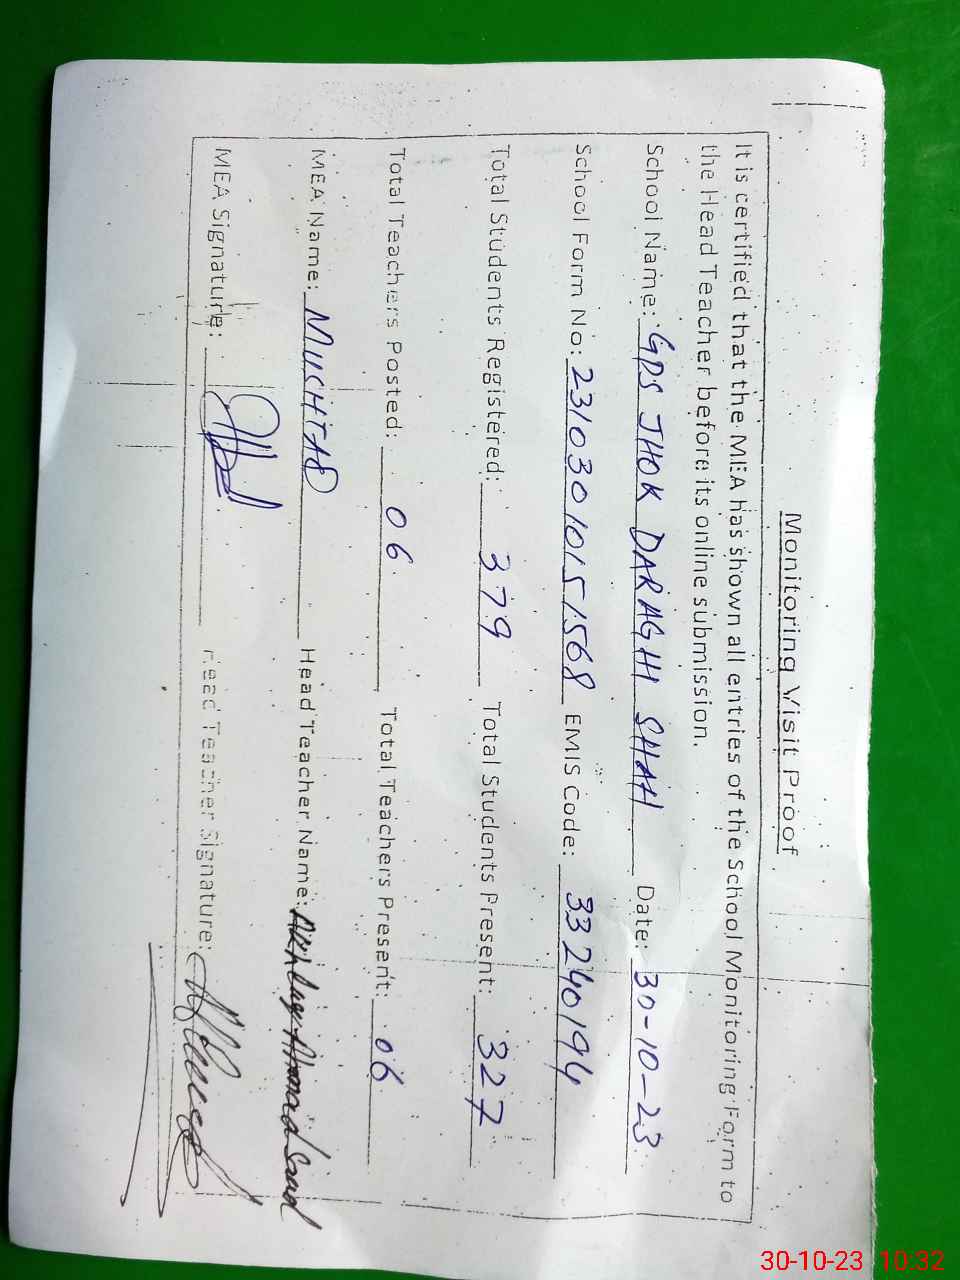 Monitoring Visit Proof
It is certified that the MEA has shown all entries of the School Monitoring Form to
the Head Teacher before its online submission.
School Name: GPS JHOK DARAGHI SHAH Date: 30-10-23
School Form No: 23103010151568 EMIS Code: 33240194
Total Students Registered: 379 Total Students Present: 327
Total Teachers Posted: 06 Total Teachers Present: 06
MEA Name: MUSHTAQ Head Teacher Name: Ahmad
MEA Signature: Head Teacher Signature:
30-10-23 10:32